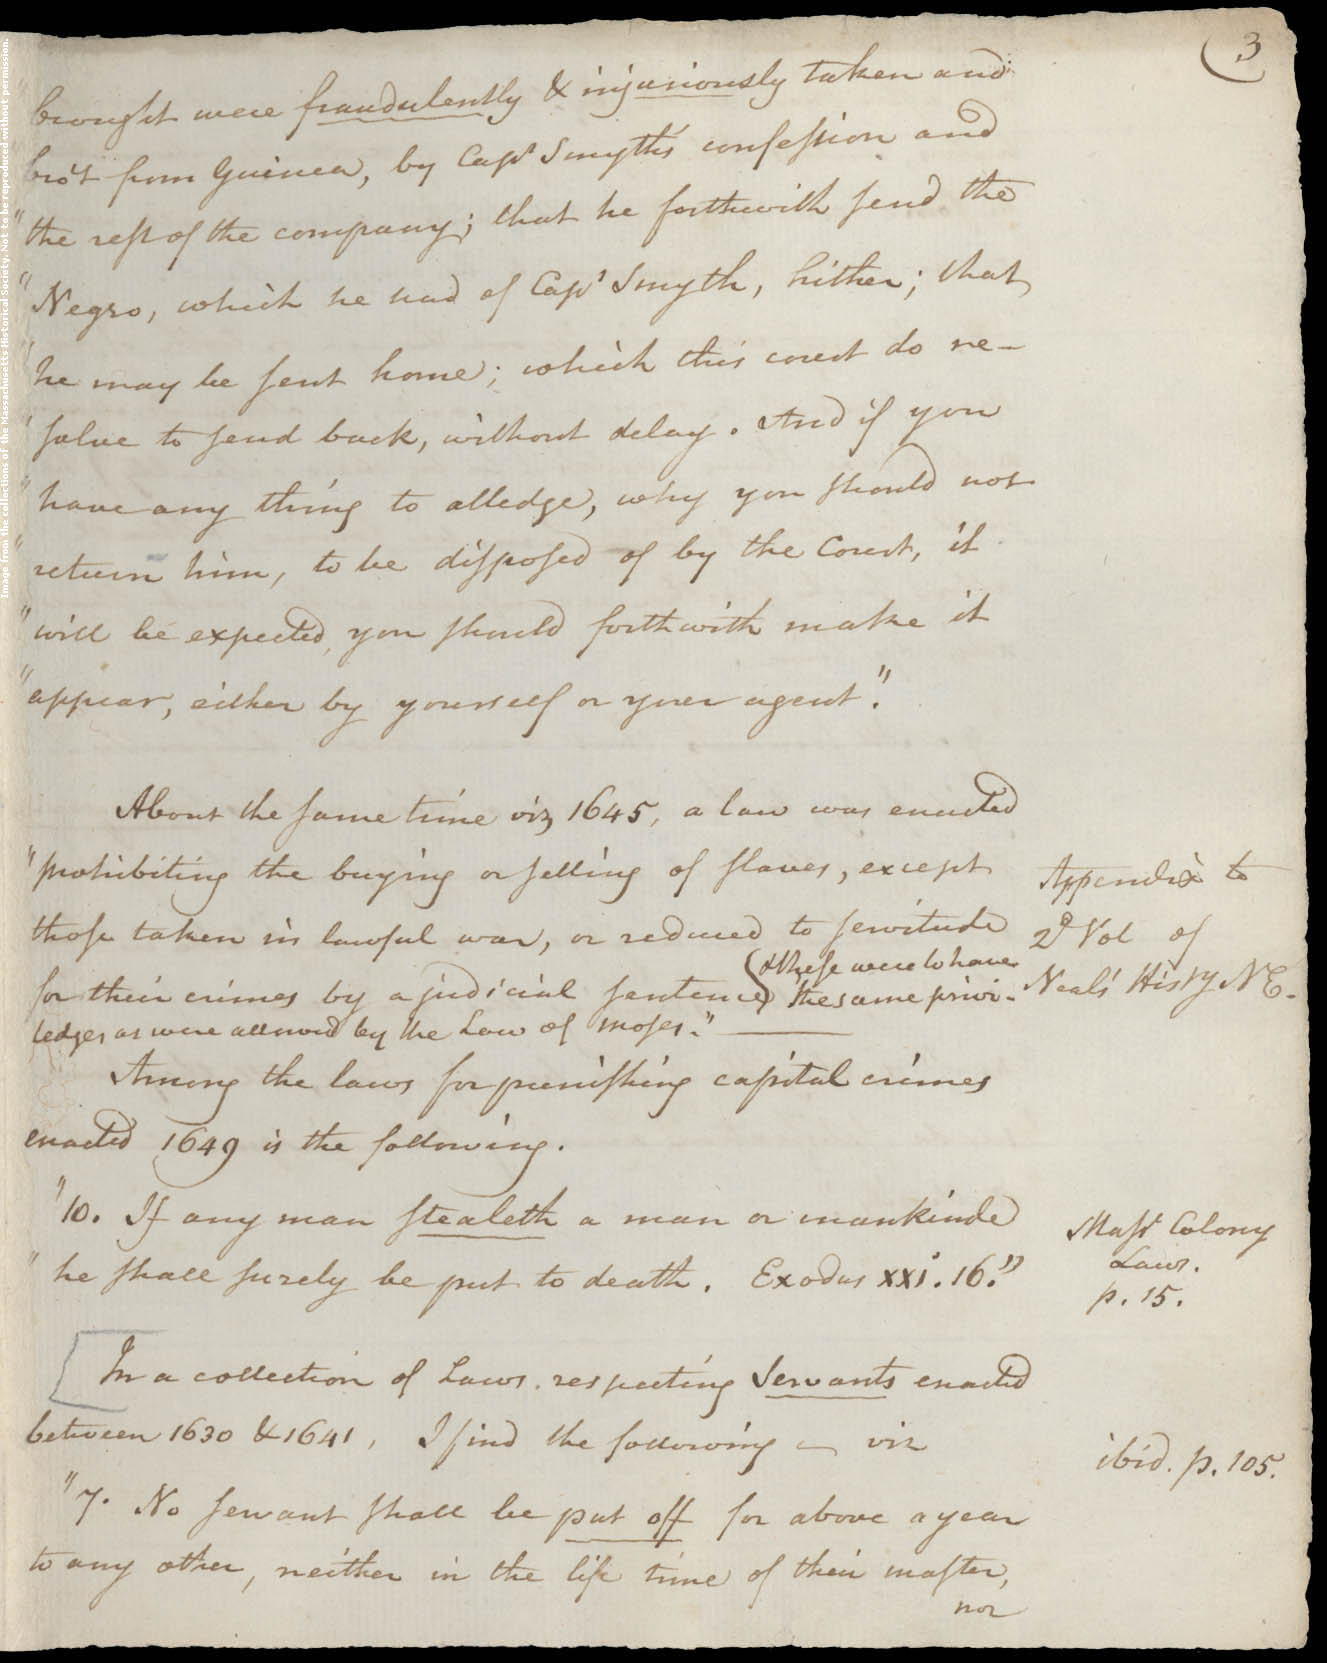 3
brought were fraudulently & injuriously taken and
bro't from Guinea, by Capt Smyth's confession and
" the rest of the company; that he forthwith send the
" Negro, which he had of Capt Smyth, hither; that
" he may be sent home; which this court do re-
" solve to send back, without delay. And if you
" have any thing to alledge, why you should not
" return him, to be disposed of by the Court, it
" will be expected, you should forthwith make it
" appear, either by yourself or your agent."
About the same time viz 1645, a law was enacted
" prohibiting the buying or selling of slaves, except
those taken in lawful war, or reduced to servitude
for their crimes by a judicial sentence, & these were to have
the same privi-
ledges as were allowed by the Law of Moses."
Appendix to
2d Vol of
Neal's Histy N E.
Among the laws for punishing capital crimes
enacted 1649 is the following.
" 10. If any man stealeth a man or mankinde
" he shall surely be put to death. Exodus xxi. 16."
Masst Colony
Laws.
p. 15.
In a collection of Laws respecting Servants enacted
between 1630 & 1641, I find the following — viz
ibid. p. 105.
" 7. No servant shall be put off for above a year
to any other, neither in the life time of their master,
nor
Image from the collections of the Massachusetts Historical Society. Not to be reproduced without permission.